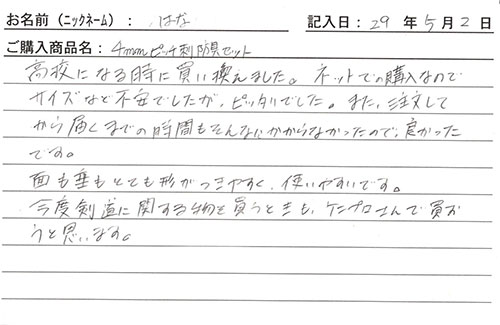 お名前（ニックネーム）： はな 記入日：29 年 5 月 2 日
ご購入商品名：4mmピッチ刺防具セット
高校になる時に買い換えました。ネットでの購入なので
サイズなど不安でしたが、ピッタリでした。また、注文して
から届くまでの時間もそんなにかからなかったので、良かった
です。
面も垂もとても形がつきやすく、使いやすいです。
今度剣道に関する物を買うときも、ケンプロさんで買お
うと思います。